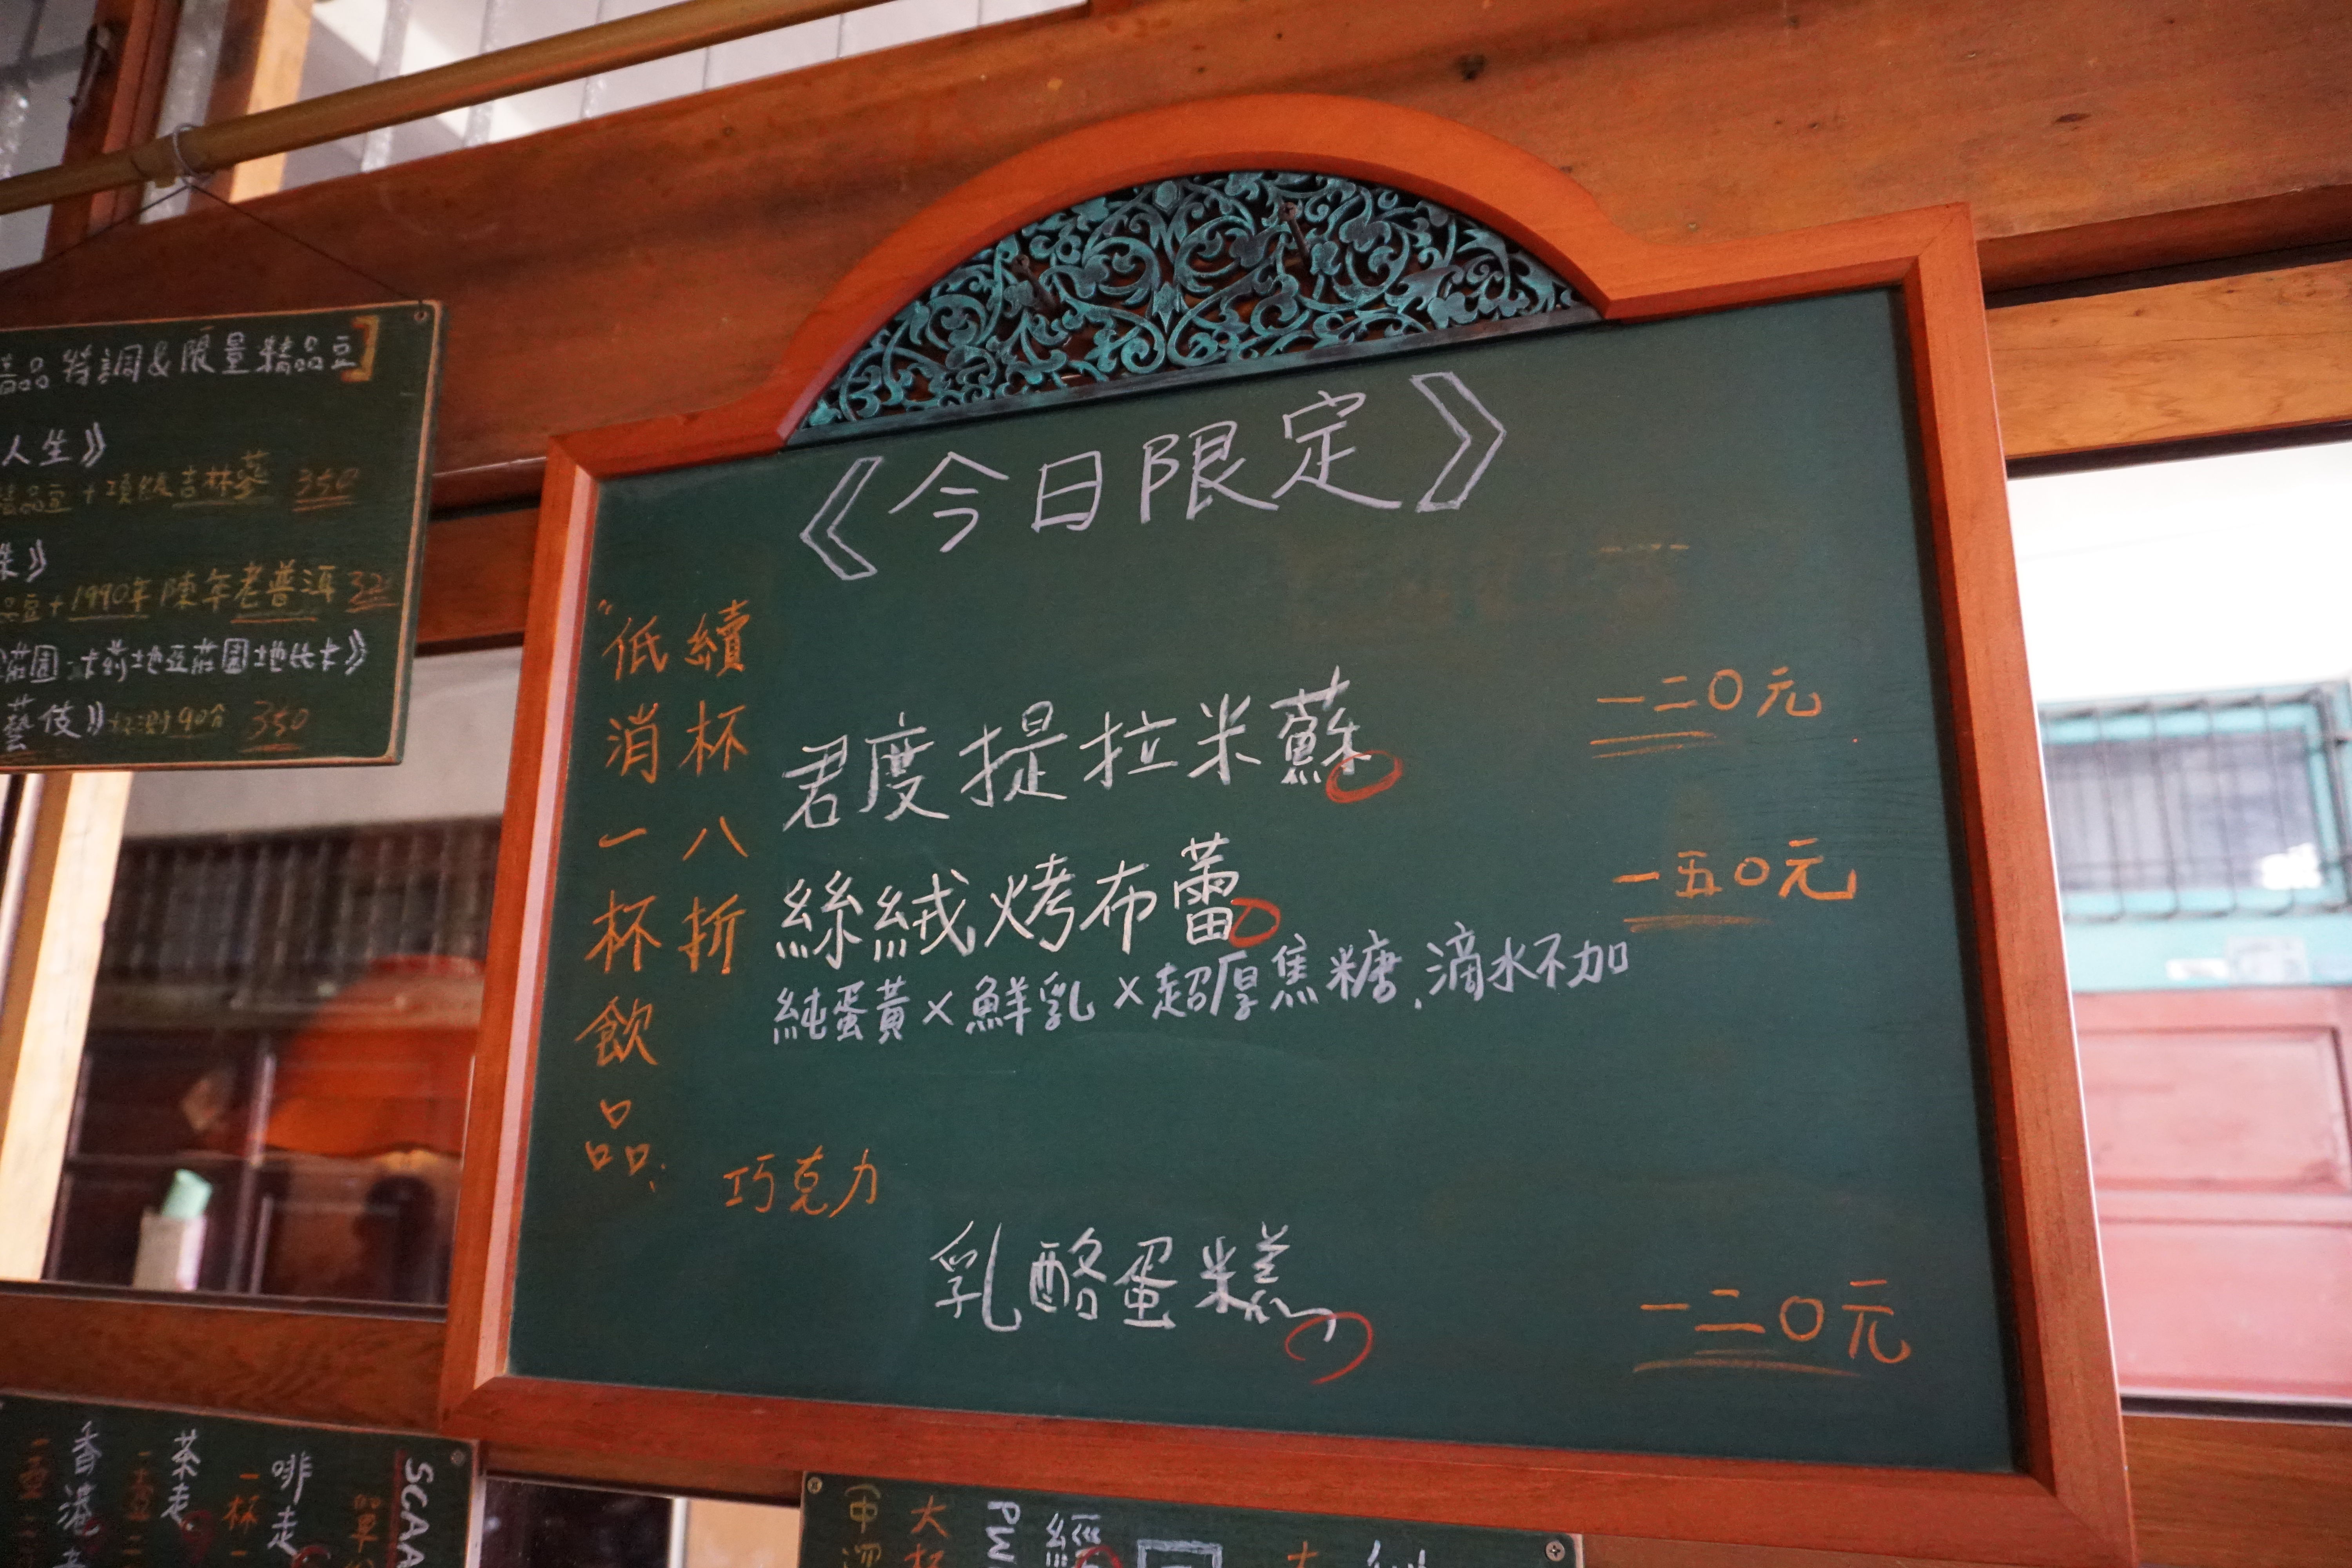 《今日限定》
續杯八折
低消一杯飲品
君度提拉米蘇
一二〇元
絲絨烤布蕾
一五〇元
純蛋黃×鮮乳×超厚焦糖.滴水不加
巧克力
乳酪蛋糕
一二〇元
品特調&限量精品豆】
人生》
精品豆+頂級吉林蔘 350
》
品豆+1990年陳年老普洱 32
莊園
藝伎》杯測90分 350
SCAA
啡走
一杯
茶走
一壺二
香港
一壺二
大杯